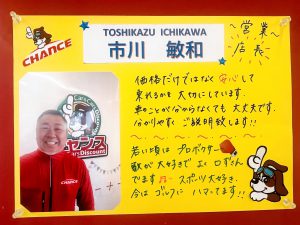 CHANCE
TOSHIKAZU ICHIKAWA
市川 敏和
～営業～
店長
価格だけではなく安心して
乗れるかを大切にしています
車のことが分からなくても大丈夫です
分かりやすくご説明致します!!
若い頃はプロボクサー
歌が大好きでよく口ずさん
でます♬ スポーツ大好き、
今はゴルフにハマってます!!
チャンス
Discount
CHANCE